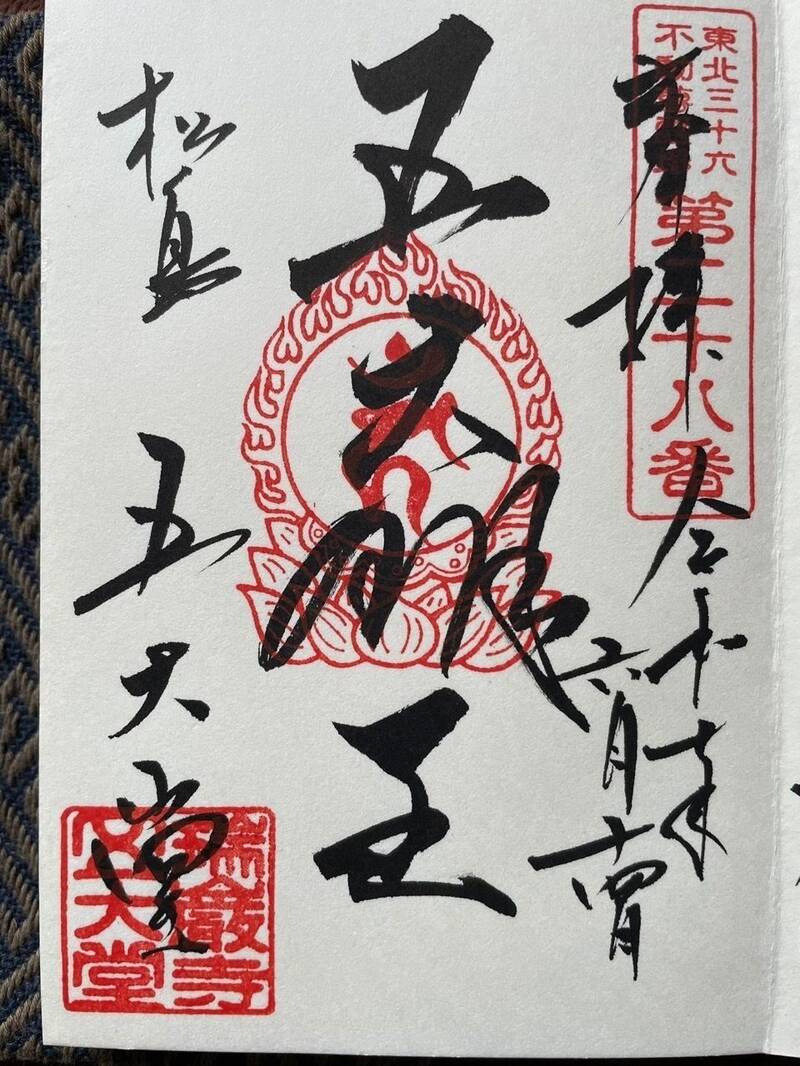 東北三十六
不動尊霊場
第二十八番
奉拝
令和七年
六月
五大明王
松島
五大堂
瑞巌寺
五大堂